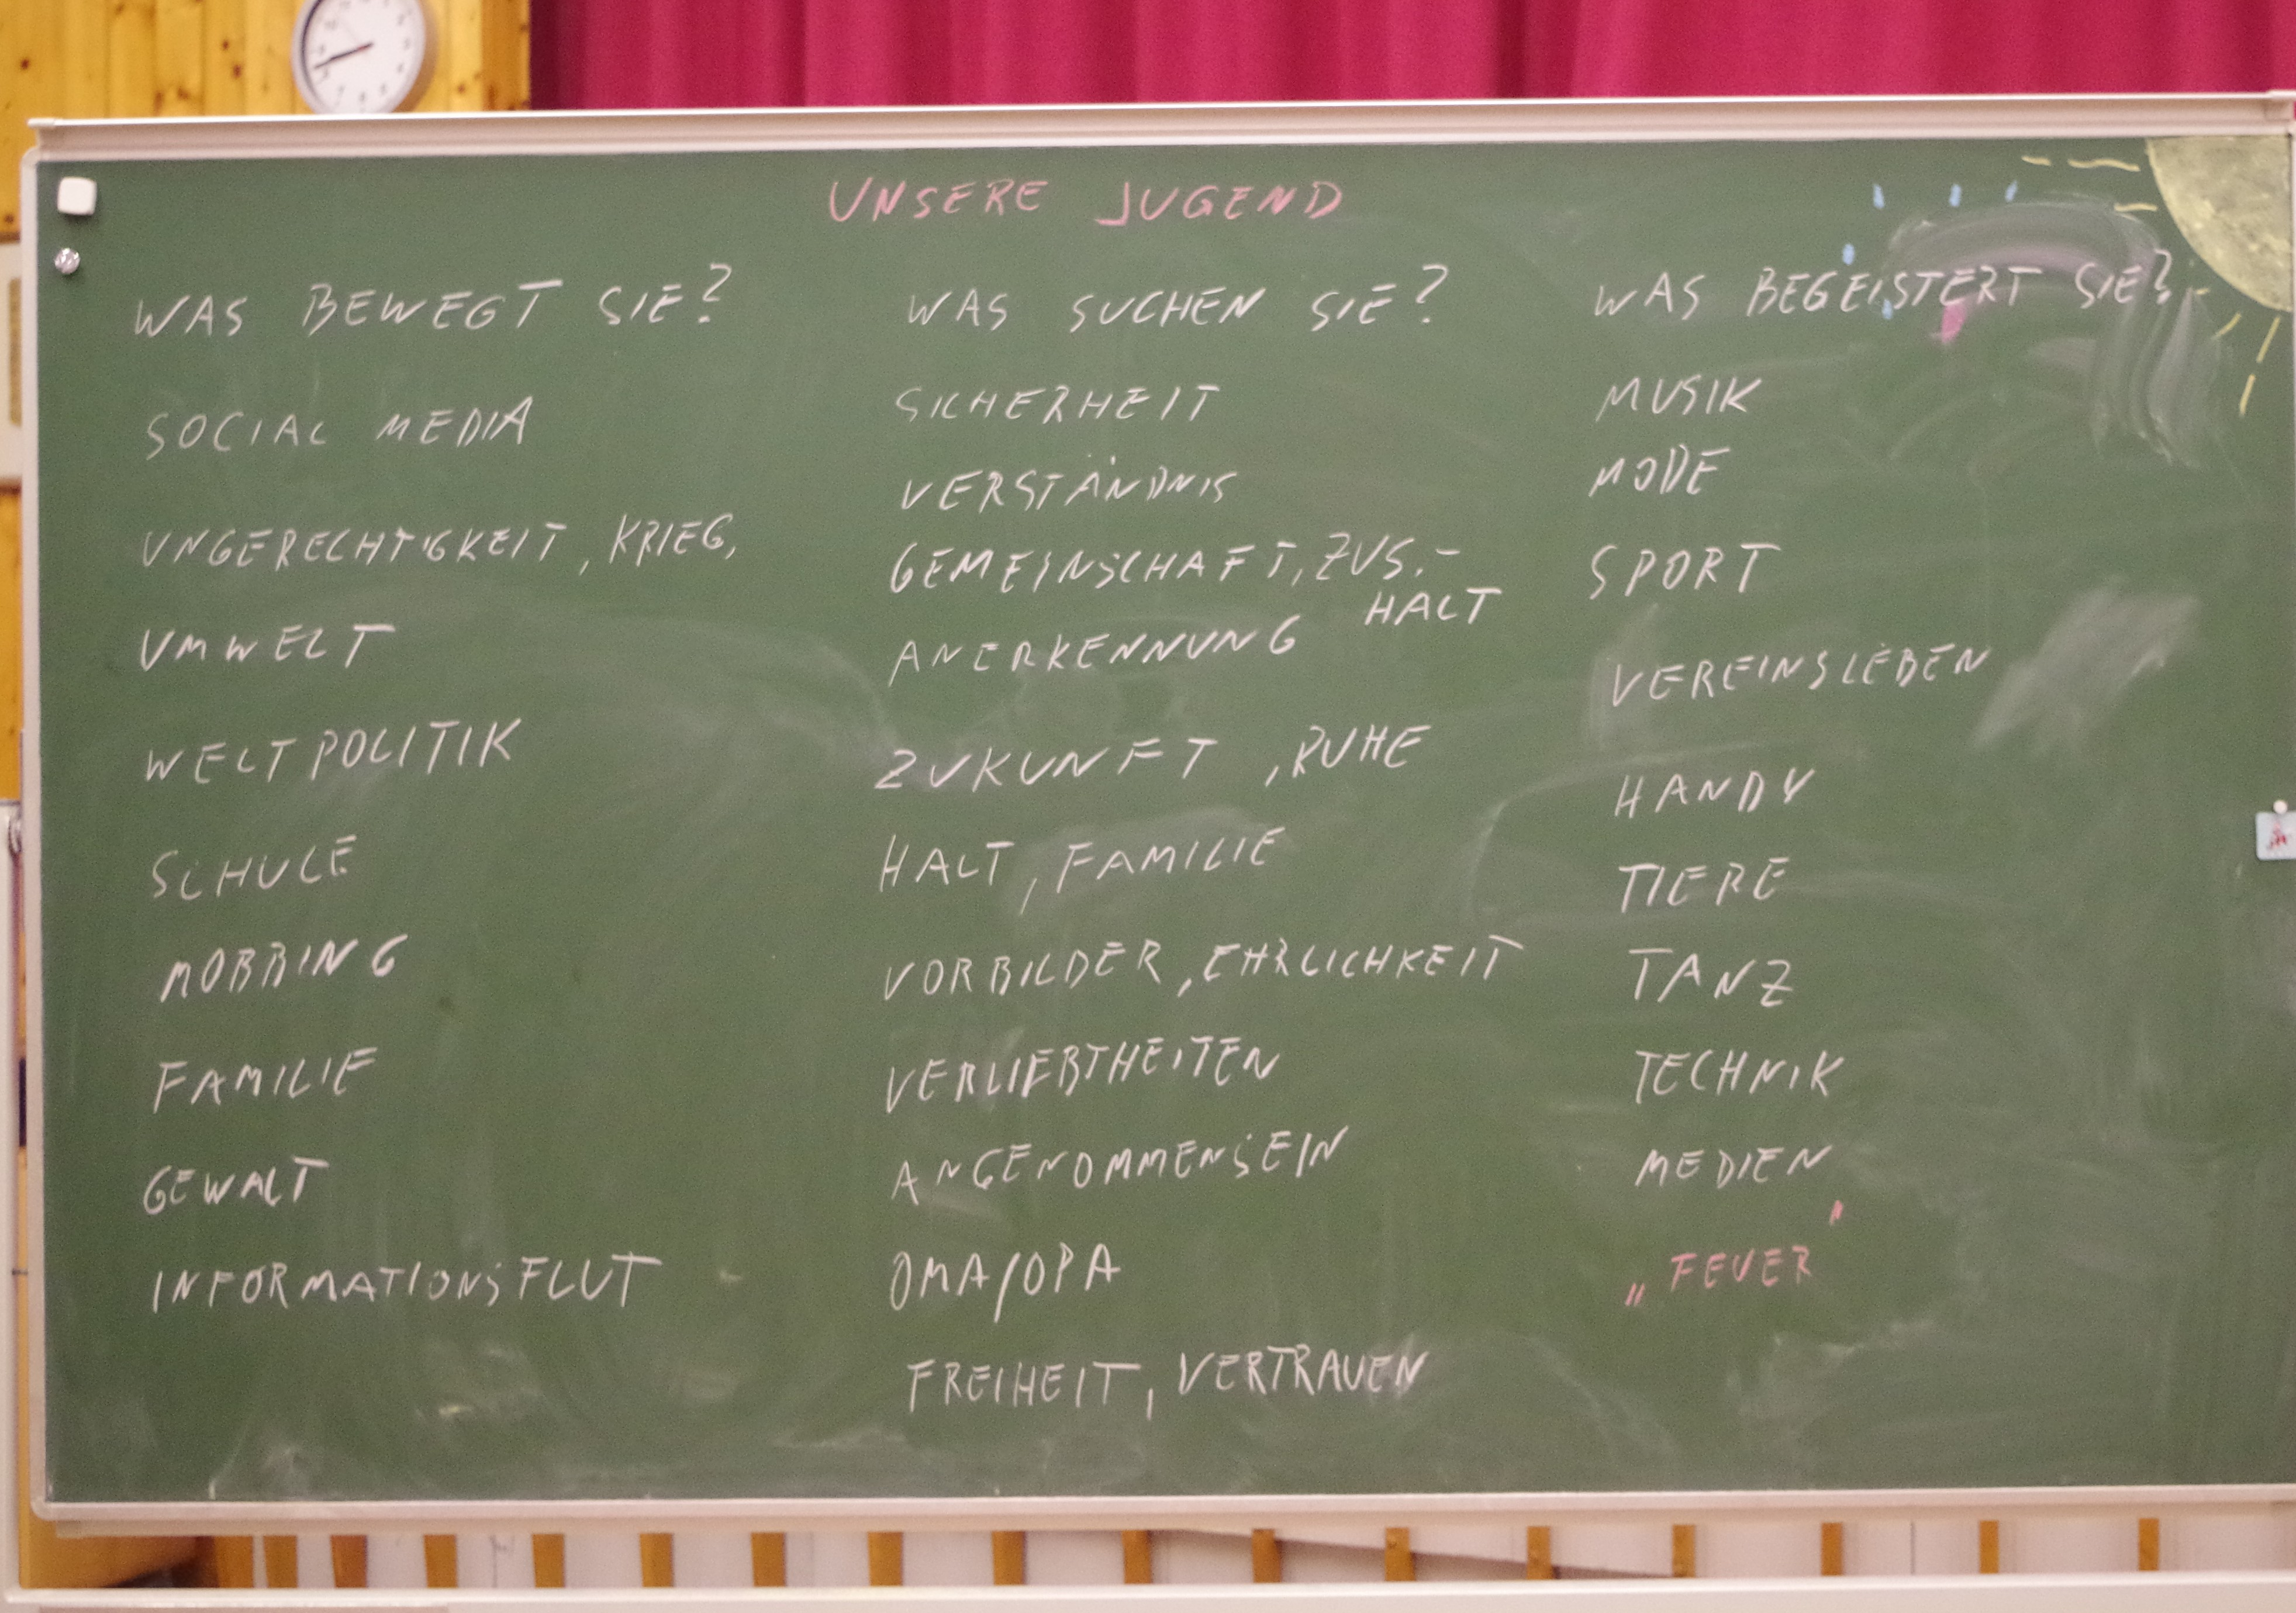 UNSERE JUGEND
WAS BEWEGT SIE?
SOCIAL MEDIA
UNGERECHTIGKEIT, KRIEG,
UMWELT
WELTPOLITIK
SCHULE
MOBBING
FAMILIE
GEWALT
INFORMATIONSFLUT
WAS SUCHEN SIE?
SICHERHEIT
VERSTÄNDNIS
GEMEINSCHAFT, ZUS.-
HALT
ANERKENNUNG
ZUKUNFT, RUHE
HALT, FAMILIE
VORBILDER, EHRLICHKEIT
VERLIEBTHEITEN
ANGENOMMENSEIN
OMA/OPA
FREIHEIT, VERTRAUEN
WAS BEGEISTERT SIE?
MUSIK
MODE
SPORT
VEREINSLEBEN
HANDY
TIERE
TANZ
TECHNIK
MEDIEN
„FEUER"